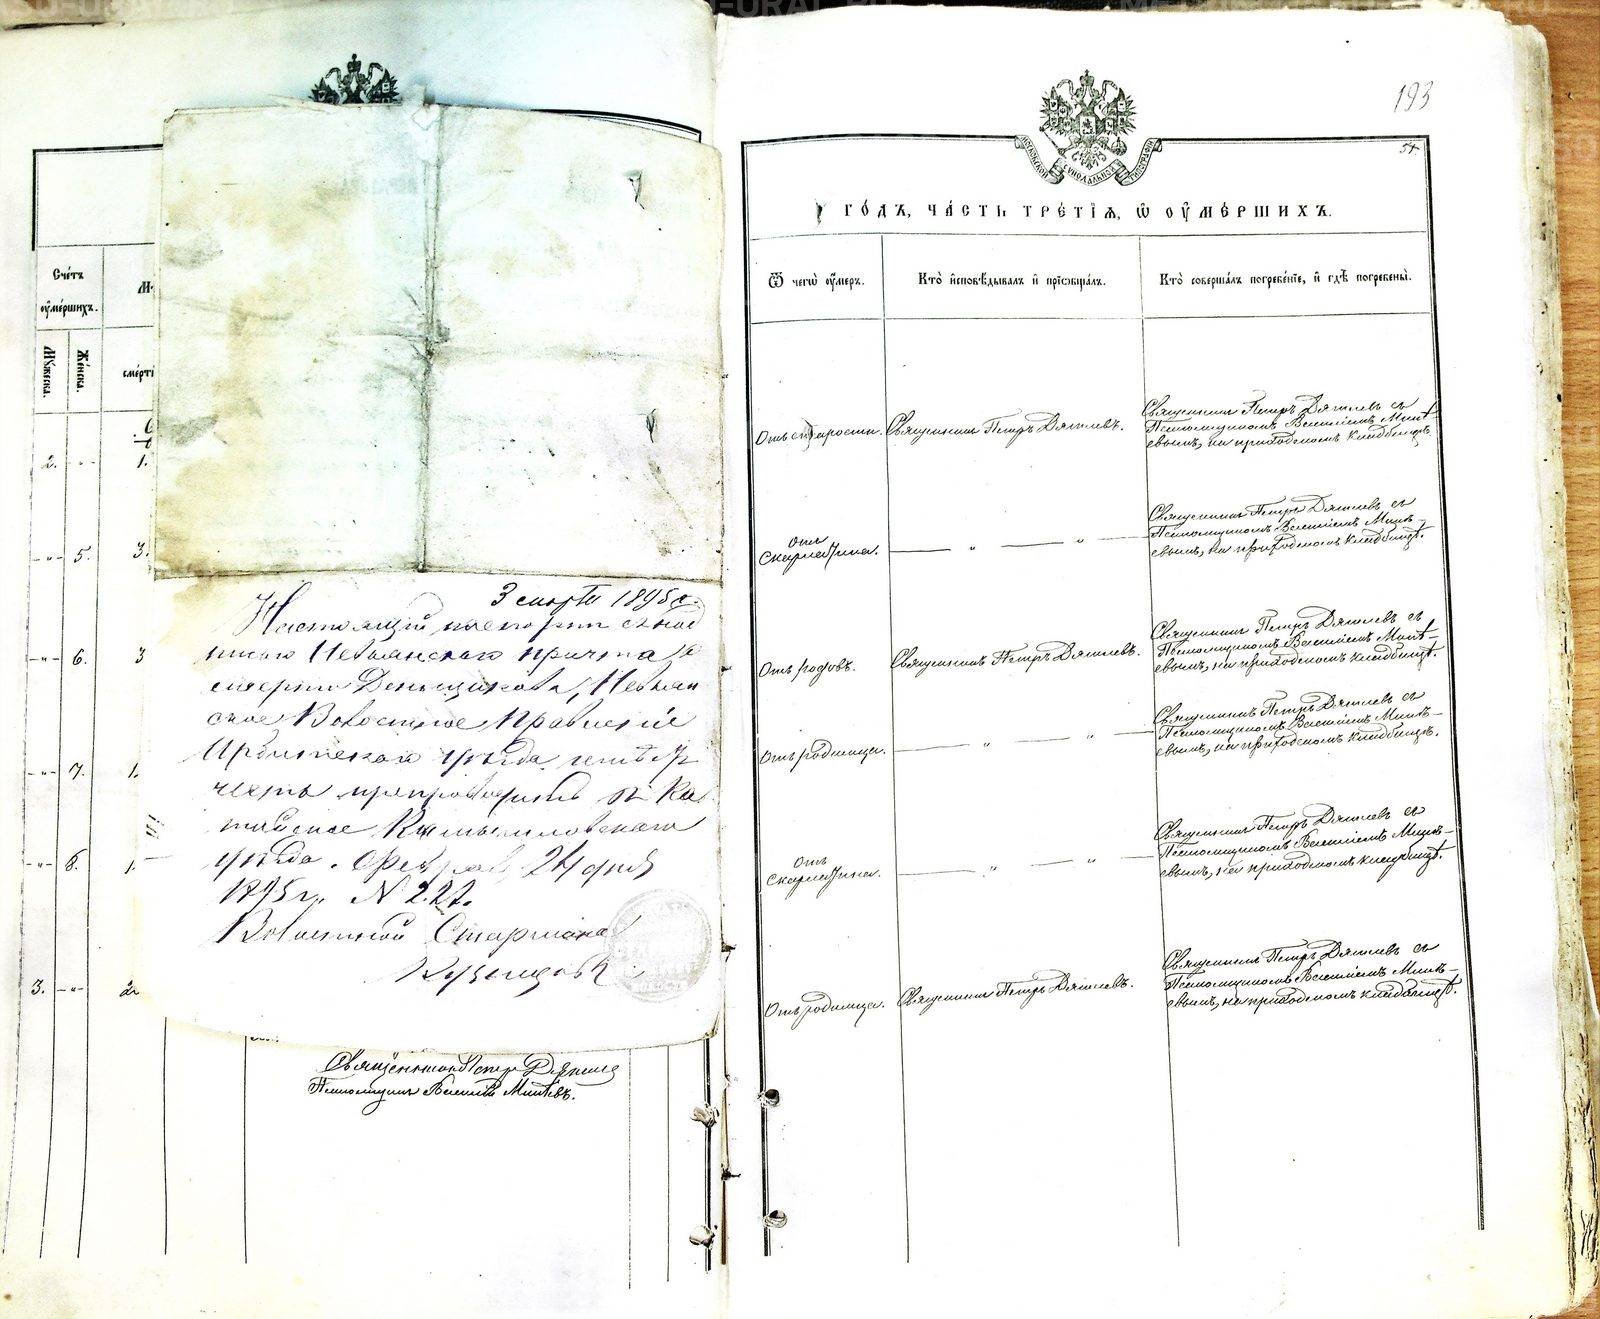 Счéтъ
оу҆мéршихъ.
Мꙋ́жеска.
Жéнска.
смéрти
2. -"- 1.
-"- 5. 3.
-"- 6. 3
-"- 7. 1.
-"- 8. 1.
3. -"- 2
3 марта 1895 г.
Настоящий паспортъ
Невьянскаго причта о
смерти Деньщикова, Невьян
ское Волостное Правленіе
Ирбитскаго уѣзда
честь препроводить въ Ка
тайское Камышловскаго
уѣзда. Февраля 24 дня
1895 г. N 222.
Волостной Старшина
Кузнецовъ
Священникъ Петръ Дягилев
Псаломщикъ Василій Мишѣвъ.
193
54
МОСКОВСКОЙ СѴНОДАЛЬНОЙ ТИПОГРАФІИ
ГÓДЪ, ЧÁСТЬ ТРÉТІѦ, Ѡ҆ ОУ҆МÉРШИХЪ.
Ѿ чегѡ̀ оу҆́меръ.
Ктò и҆сповѣ́дывалъ и҆ пріѻбщáлъ.
Ктò совершáлъ погребéніе, и҆ гдѣ̀ погребены̀.
Отъ старости. Священникъ Петръ Дягилевъ.
Священникъ Петръ Дягилевъ съ
Псаломщикомъ Василіемъ Мишѣ-
евымъ, на приходскомъ кладбищѣ.
отъ
Скарлатина. — " — " —
Священникъ Петръ Дягилевъ съ
Псаломщикомъ Василіемъ Мишѣ-
евымъ, на приходскомъ кладбищѣ.
Отъ родовъ. Священникъ Петръ Дягилевъ.
Священникъ Петръ Дягилевъ съ
Псаломщикомъ Василіемъ Мишѣ-
евымъ, на приходскомъ кладбищѣ.
Отъ родимца. — " — " —
Священникъ Петръ Дягилевъ съ
Псаломщикомъ Василіемъ Мишѣ-
евымъ, на приходскомъ кладбищѣ.
отъ
Скарлатина. — " — " —
Священникъ Петръ Дягилевъ съ
Псаломщикомъ Василіемъ Мишѣ-
евымъ, на приходскомъ кладбищѣ.
Отъ родимца. Священникъ Петръ Дягилевъ.
Священникъ Петръ Дягилевъ съ
Псаломщикомъ Василіемъ Мишѣ-
евымъ, на приходскомъ кладбищѣ.